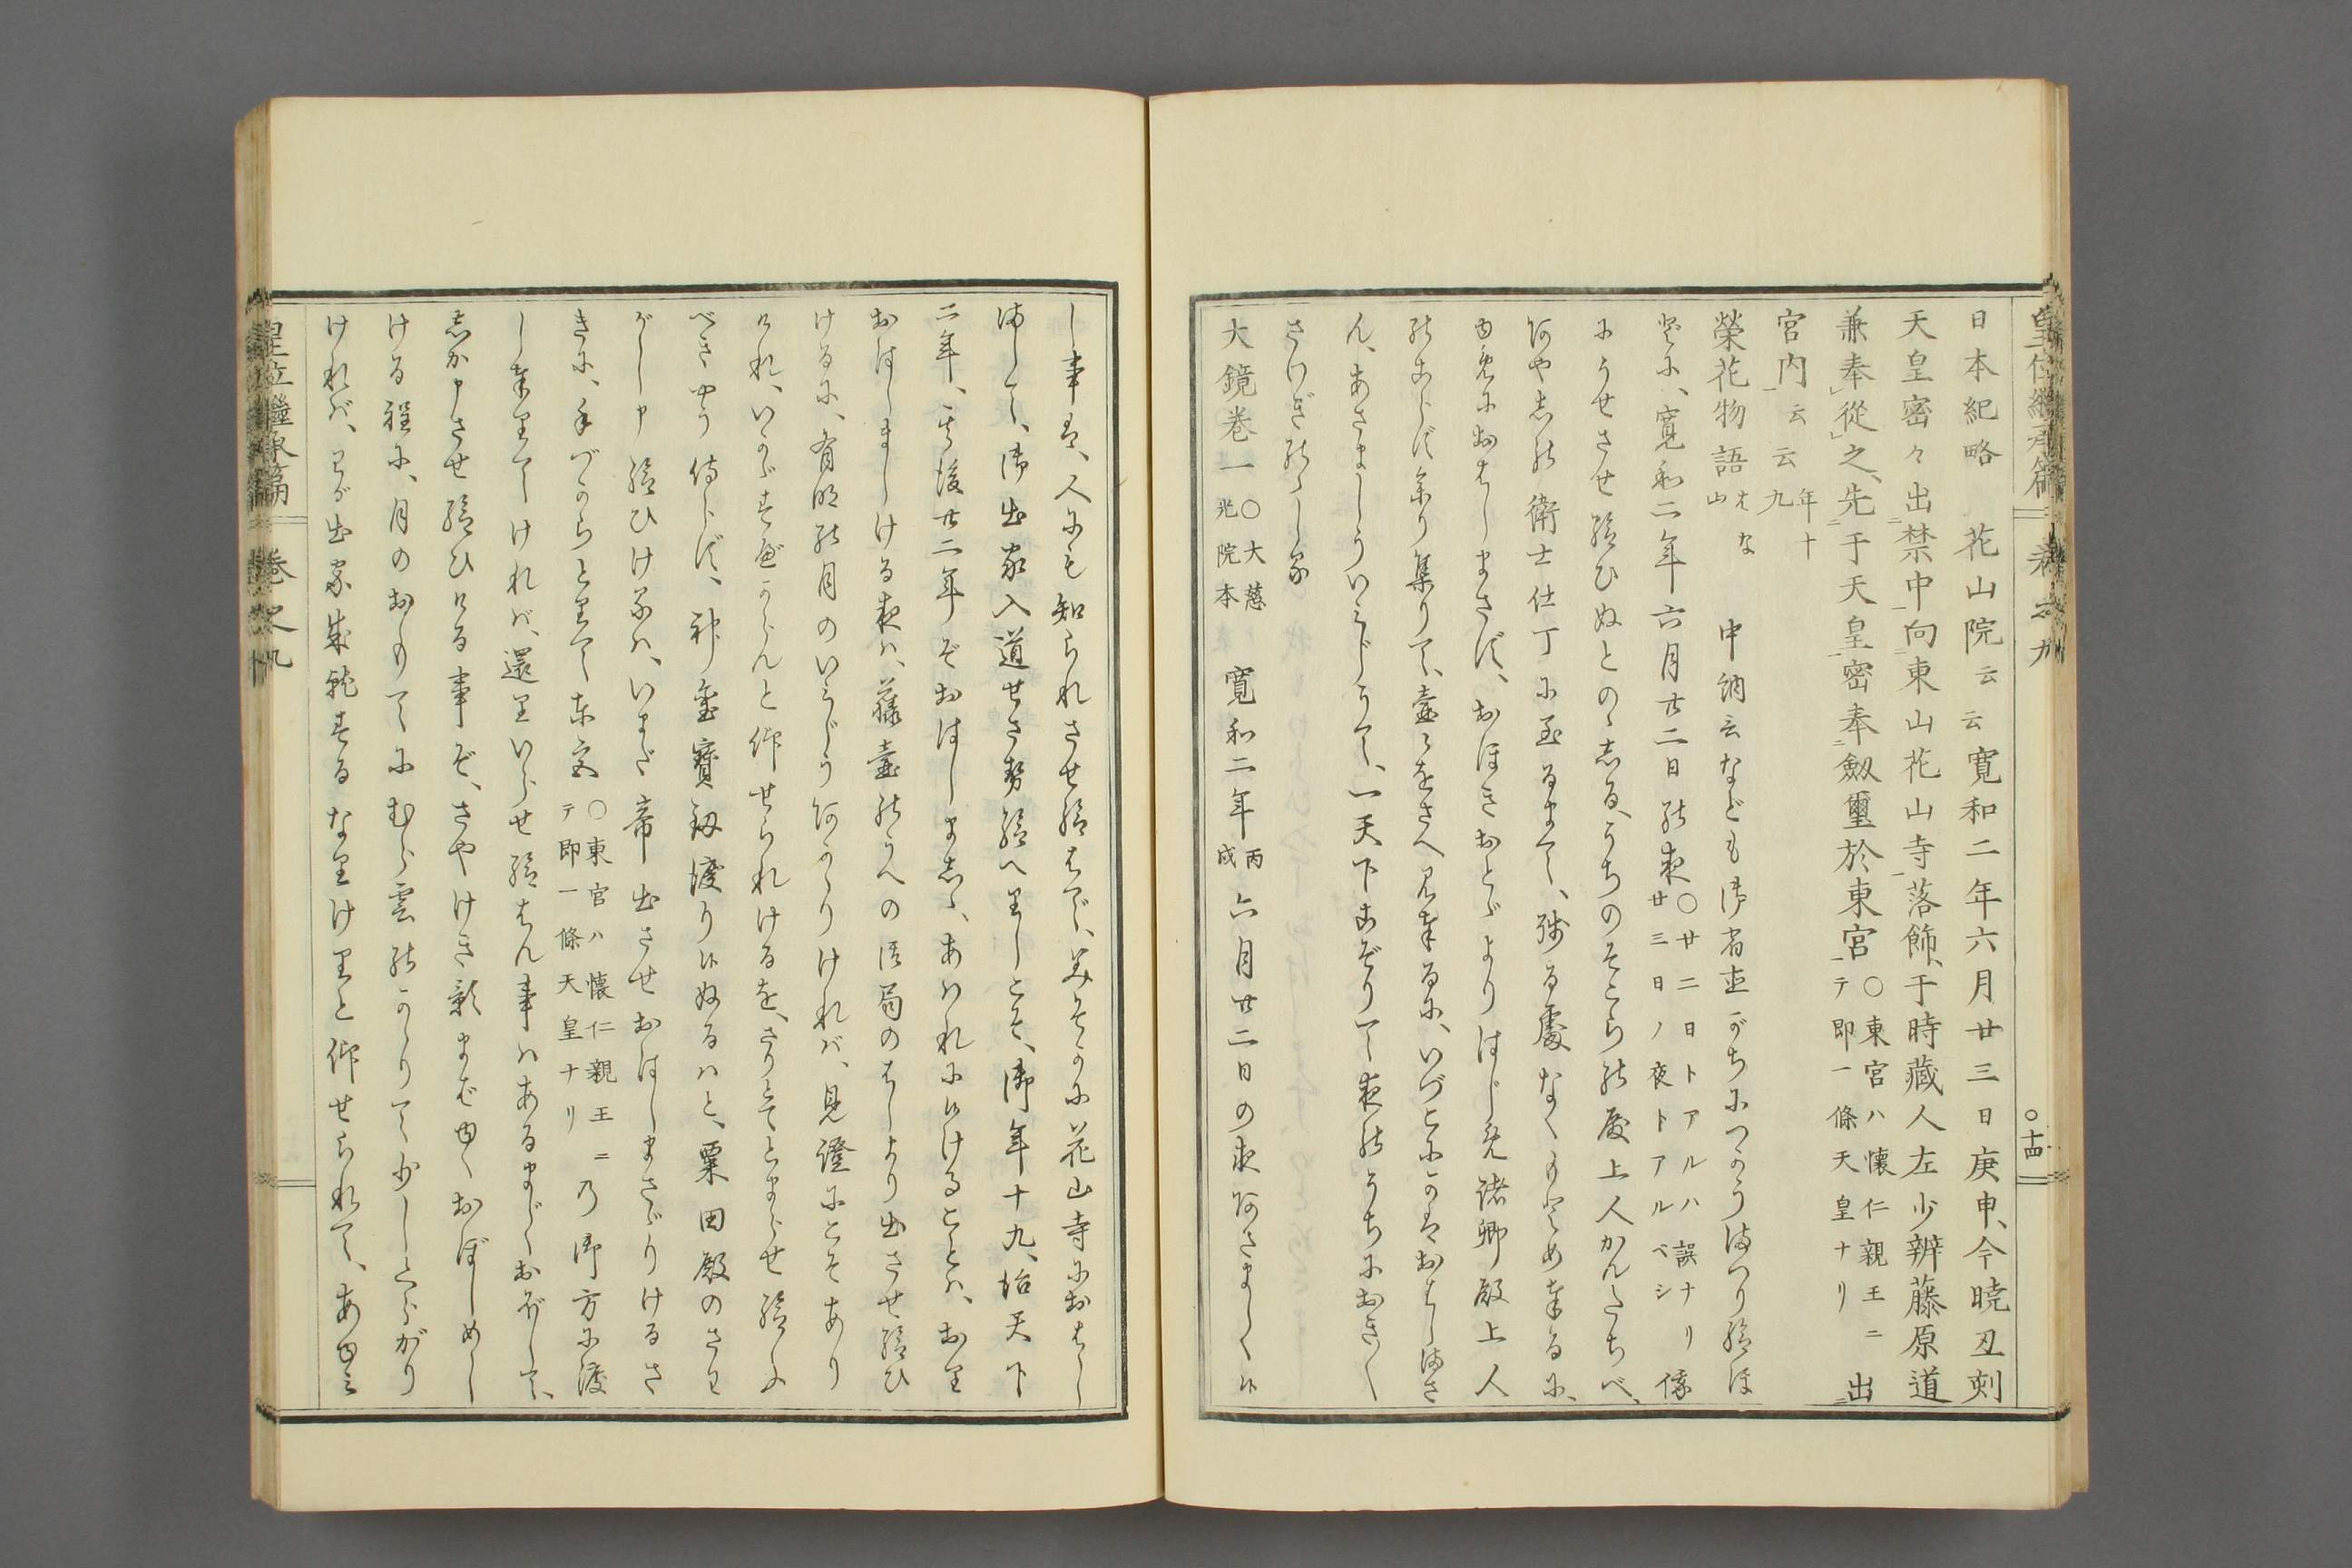 皇位繼承篇 卷之九 ○十四
日本紀略 花山院云云寛和二年六月廿三日庚申、今暁丑刻
天皇密々出禁中向東山花山寺落飾、于時藏人左少辨藤原道
兼奉從之、先于天皇密奉劔璽於東宮○東宮ハ懐仁親王ニテ即一條天皇ナリ出
宮内云云年十九
榮花物語はな山 中納言なども御宿直がちにつかう満つり給ほ
どに、寛和二年六月廿二日の夜○廿二日トアルハ誤ナリ廿三日ノ夜トアルベシ俄
にうせさせ給ひぬとのゝしる、うちのそこらの殿上人かんたちべ、
あやしの衛士仕丁に至るまで、殘る處なくもとめ奉るに、
ゆめにおはしまさず、おほきおとゞよりはじめ諸卿殿上人
のこらず参り集りて、壷々をさへ見奉るに、いづこにかはおはし満さ
ん、あさましういみじうて、一天下こぞりて夜のうちにおきく
さわぎのゝしる
大鏡卷一○大慈光院本 寛和二年丙戌六月廿二日の夜あさましく候
し事は、人にも知られさせ給はで、みそかに花山寺におはし
満して、御出家入道せさ勢給へりしこそ、御年十九、治天下
二年、其後廿二年ぞおはしましゝ、あハれに候けることハ、おり
おはしましける夜ハ、藤壷のうへの御局のはしより出させ給ひ
けるに、有明の月のいみじうあかゝりければ、見證にこそあり
けれ、いかゞすべからんと仰せられけるを、さりとてとまらせ給ふ
べきやう侍らず、神璽寶劔渡り候ぬるハと、粟田殿のさわ
がし申給ひけるハ、いまだ帝出させおはしまさゞりけるさ
きに、手づからとりて東宮○東宮ハ懐仁親王ニテ即一條天皇ナリ乃御方に渡
し奉りてければ、還りいらせ給はん事ハあるまじくおぼして、
しか申させ給ひける事ぞ、さやけき影まばゆくおぼしめし
ける程に、月のおもてにむら雲のかゝりて少しくらがり
ければ、わが出家成就するなりけりと仰せられて、あゆみ
皇位繼承篇 卷之九